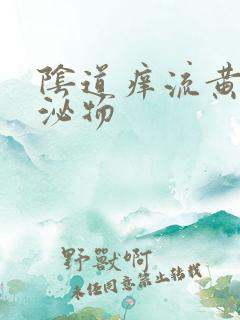 陰道痒流黄
泌物
野獸啊
未經同意禁止轉載